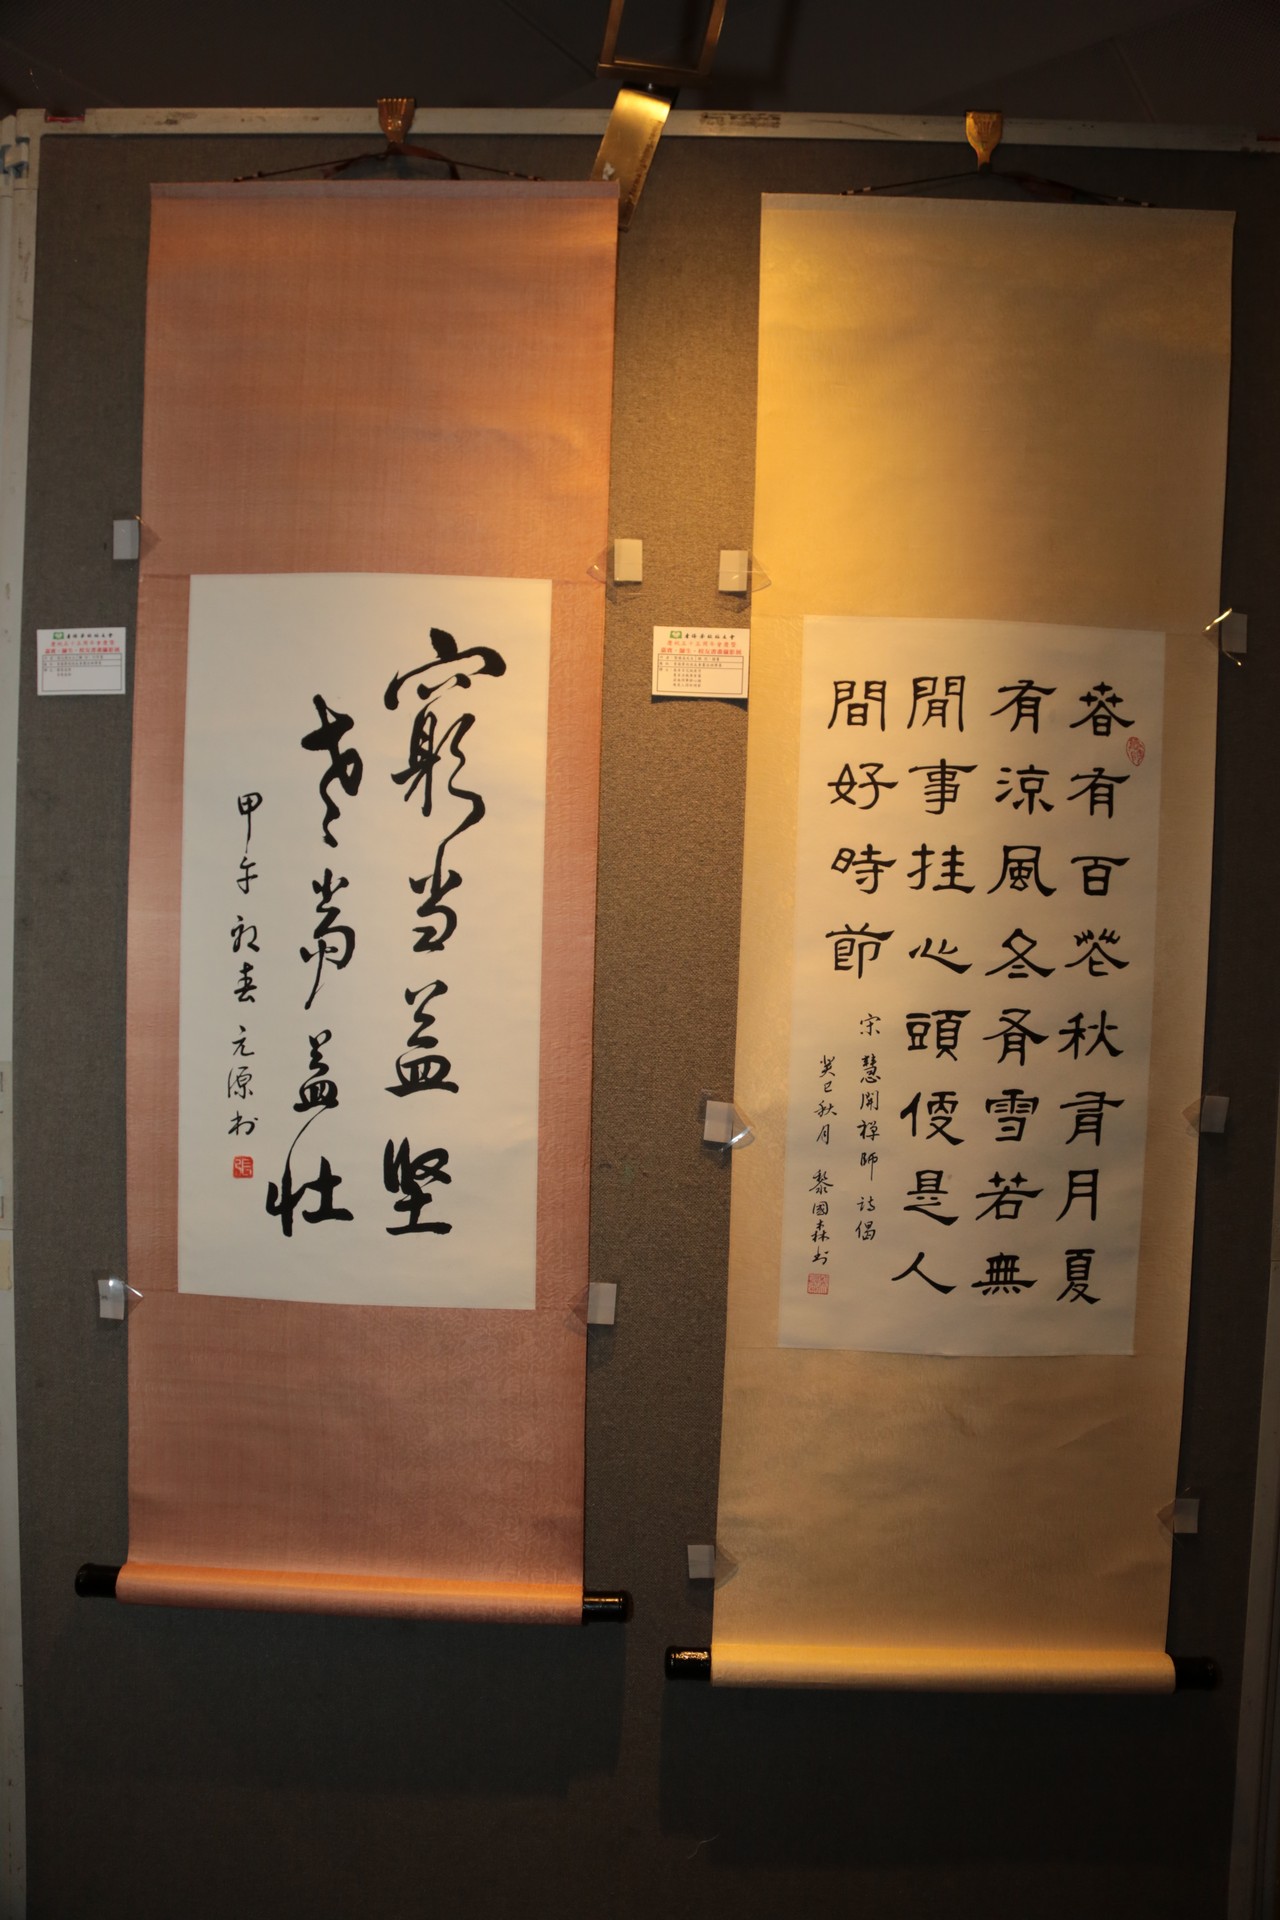 春有百花秋有月夏
有涼風冬有雪若無
閒事挂心頭便是人
間好時節
宋 慧開禪師 詩偈
癸巳秋月 黎國森书
窮当益坚
老當益壯
甲午初春 元源书